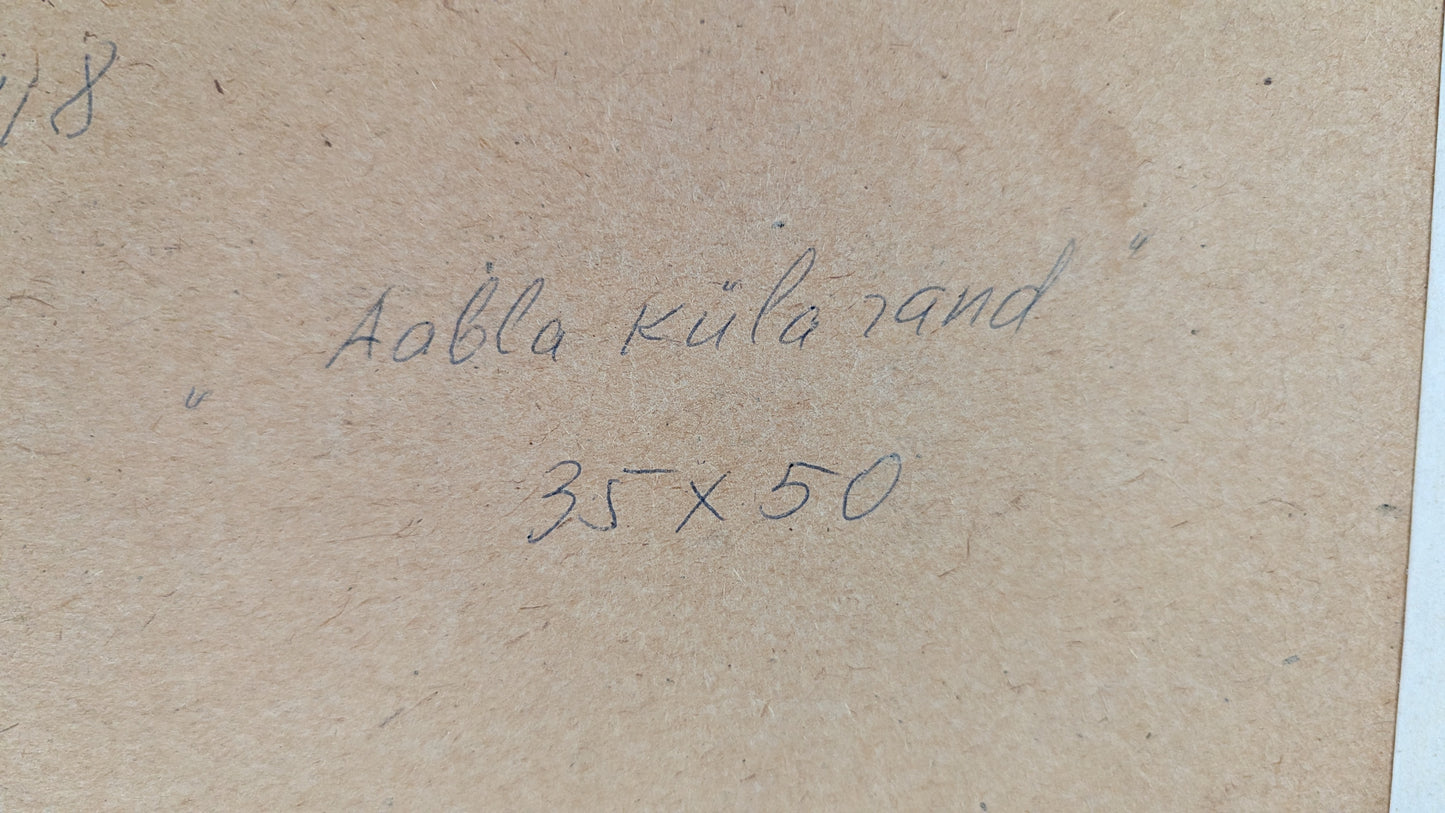 8
"Aabla küla rand"
35 x 50